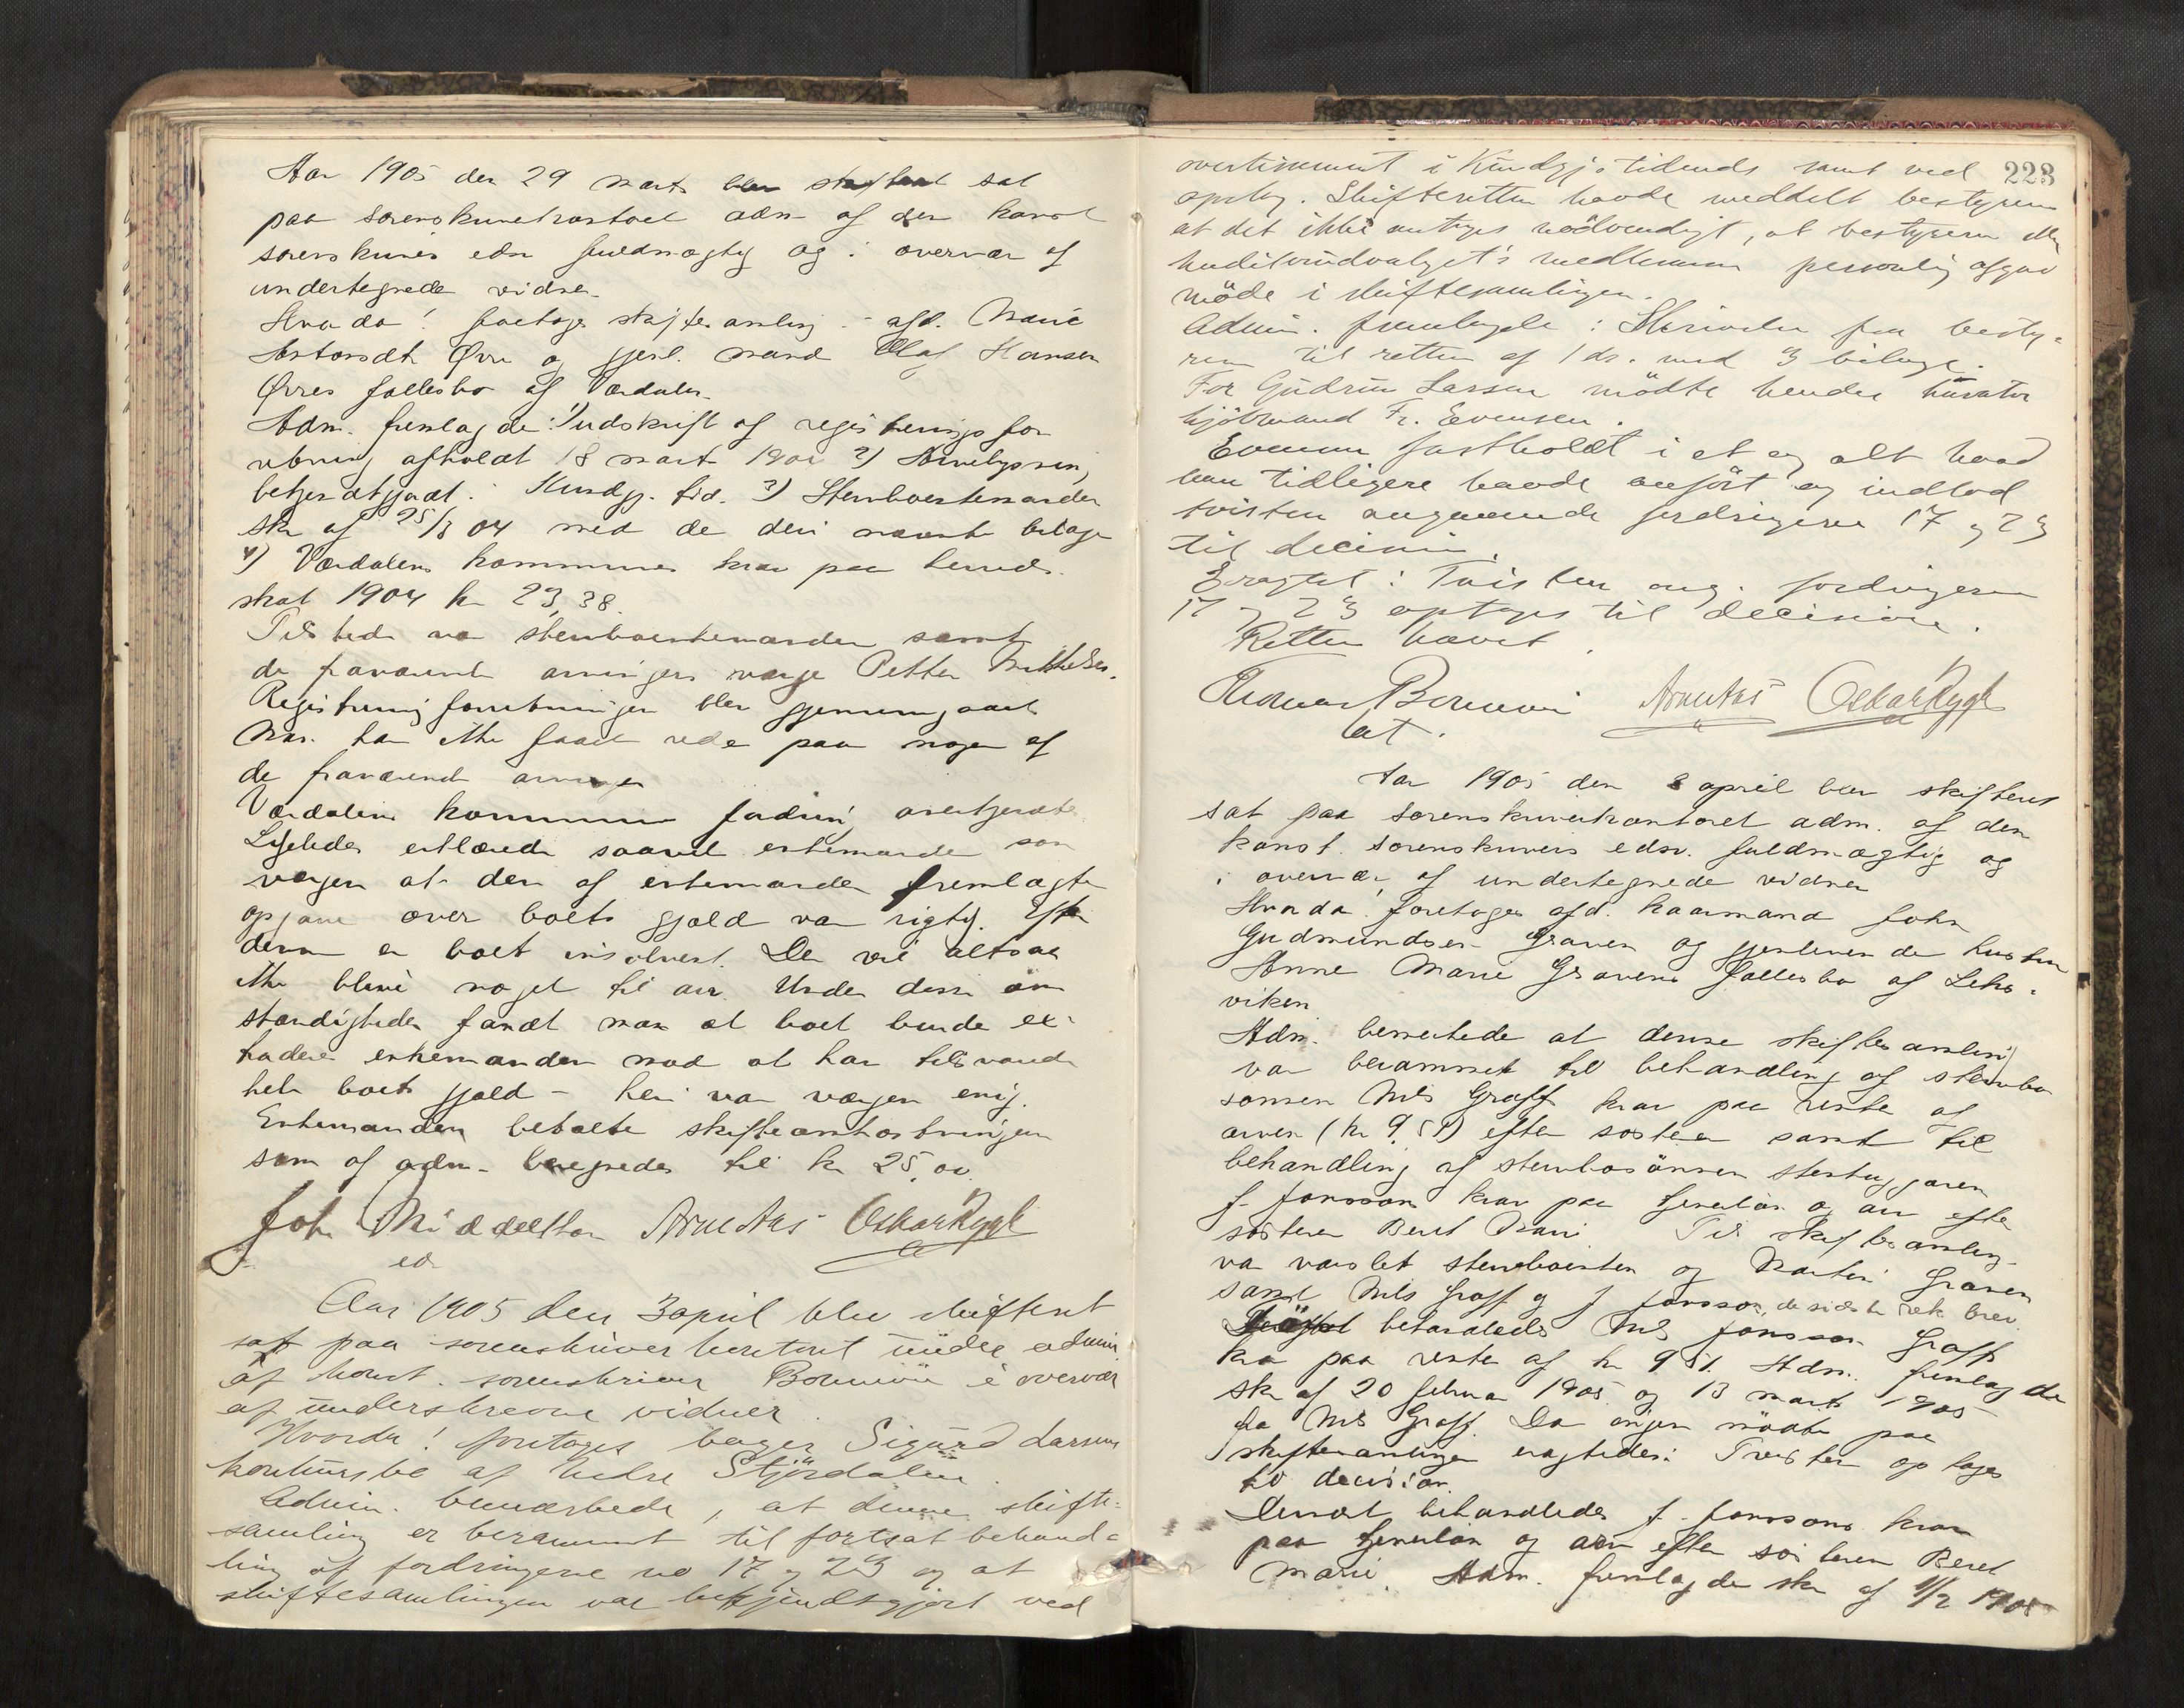 Aar 1905 den 29 marts blev skifteret sat
paa sorenskriverkontoret adm. af den konst.
sorenskrivers edsv. fuldmægtig og i overvær af
undertegnede vidner.
Hvorda! foretoges skiftesamling i afd. Marie
Øvre og gjenl. mand Olaf Hansen
Øvres fællesbo af Værdalen.
Adm. fremlagde: 1) Udskrift af registreringsfor
retning afholdt 18 mart 190
betjendtgjort i Kundgj. tid. 3) Stervboenkemanden
skr af 25/3 04 med de deri nævnte bilage
4) Værdalens kommunes krav paa herreds-
skat 1904 kr 23,38.
Tilstede var stervboenkemanden samt
de fraværende arvingers værge Petter
Registreringsforretningen blev gjennemgaaet
Man har ikke faaet rede paa nogen af
de fraværende arvinger
Værdalens kommunes fordring
Ligeledes erklærede saavel enkemanden som
værgen at den af enkemanden fremlagte
opgave over boets gjæld var rigtig. Efter
denne er boet insolvent. Der vil altsaa
ikke blive noget til arv. Under disse om
stændigheder fandt man at boet burde ex-
traderes enkemanden mod at han tilsvarede
hele boets gjæld – heri var værgen enig.
Enkemanden betalte skifteomkostningen
som af adm. beregnedes til kr 25,00.
Joh Middelthon Arne Aas Oskar Rygh
ed
Aar 1905 den 3 april blev skifteret
sat paa sorenskriverkontoret under admin.
af konst. sorenskriver Bonnevie i overvær
af underskrevne vidner.
Hvorda! foretoges bager Sigurd Larsens
konkursbo af Nedre Stjørdalen.
Admin. bemærkede, at denne skifte-
samling er berammet til fortsat behand-
ling af fordringerne no 17 og 23 og at
skiftesamlingen var bekjendtgjort ved
223
avertissement i Kundgj.s tidende samt ved
opslag. Skifteretten havde meddelt bestyreren
at det ikke antoges nödvendigt, at bestyreren eller
kreditorudvalget's medlemmer personlig afgav
möde i skiftesamlingen.
Admin. fremlagde: Skrivelse fra besty-
ren til retten af 1 ds. med 3 bilage.
For Gudrun Larsen mödte hendes kurator
kjöbmand Fr. Evensen.
Evensen fastholdt i et og alt hvad
han tidligere havde anfört og indlod
tvisten angaaende fordringerne 17 og 23
til decision.
Eragtet: Tvisten ang. fordringerne
17 og 23 optages til decision.
Retten hævet.
Thomas Bonnevie Arne Aas Oskar Rygh
cst.
Aar 1905 den 8 april blev skifteret
sat paa sorenskriverkontoret adm. af den
konst. sorenskrivers edsv. fuldmægtig og
i overvær af undertegnede vidner
Hvorda! foretoges afd. kaarmand John
Gudmundsen Graven og gjenlevende hustru
Anne Marie Gravens fællesbo af Leks-
viken
Adm. bemerkede at denne skiftesamling
var berammet til behandling af stervbo
sønnen Nils Graff krav paa rente af
arven (kr 9.51) efter søsteren samt til
behandling af stervbosønnen
J. Jonssons krav paa tjenerløn og arv efter
søsteren Beret Marie Til skiftesamling
var varslet stervboenken og Martin Graven
samt Nils Graff og J Jonsson, de sidste rek brev.
behandledes Nils Jonsson Graff
krav paa rente af kr 9.51. Adm. fremlagde
skr af 20 februar 1905 og 13 marts 1905
fra Nils Graff. Da ingen mødte paa
skiftesamlingen eragtedes: Tvisten optages
til decision.
Dernæst behandledes J. Jonssons krav
paa tjenerløn og arv efter søsteren Beret
Marie. Adm. fremlagde skr af 11/2 1905